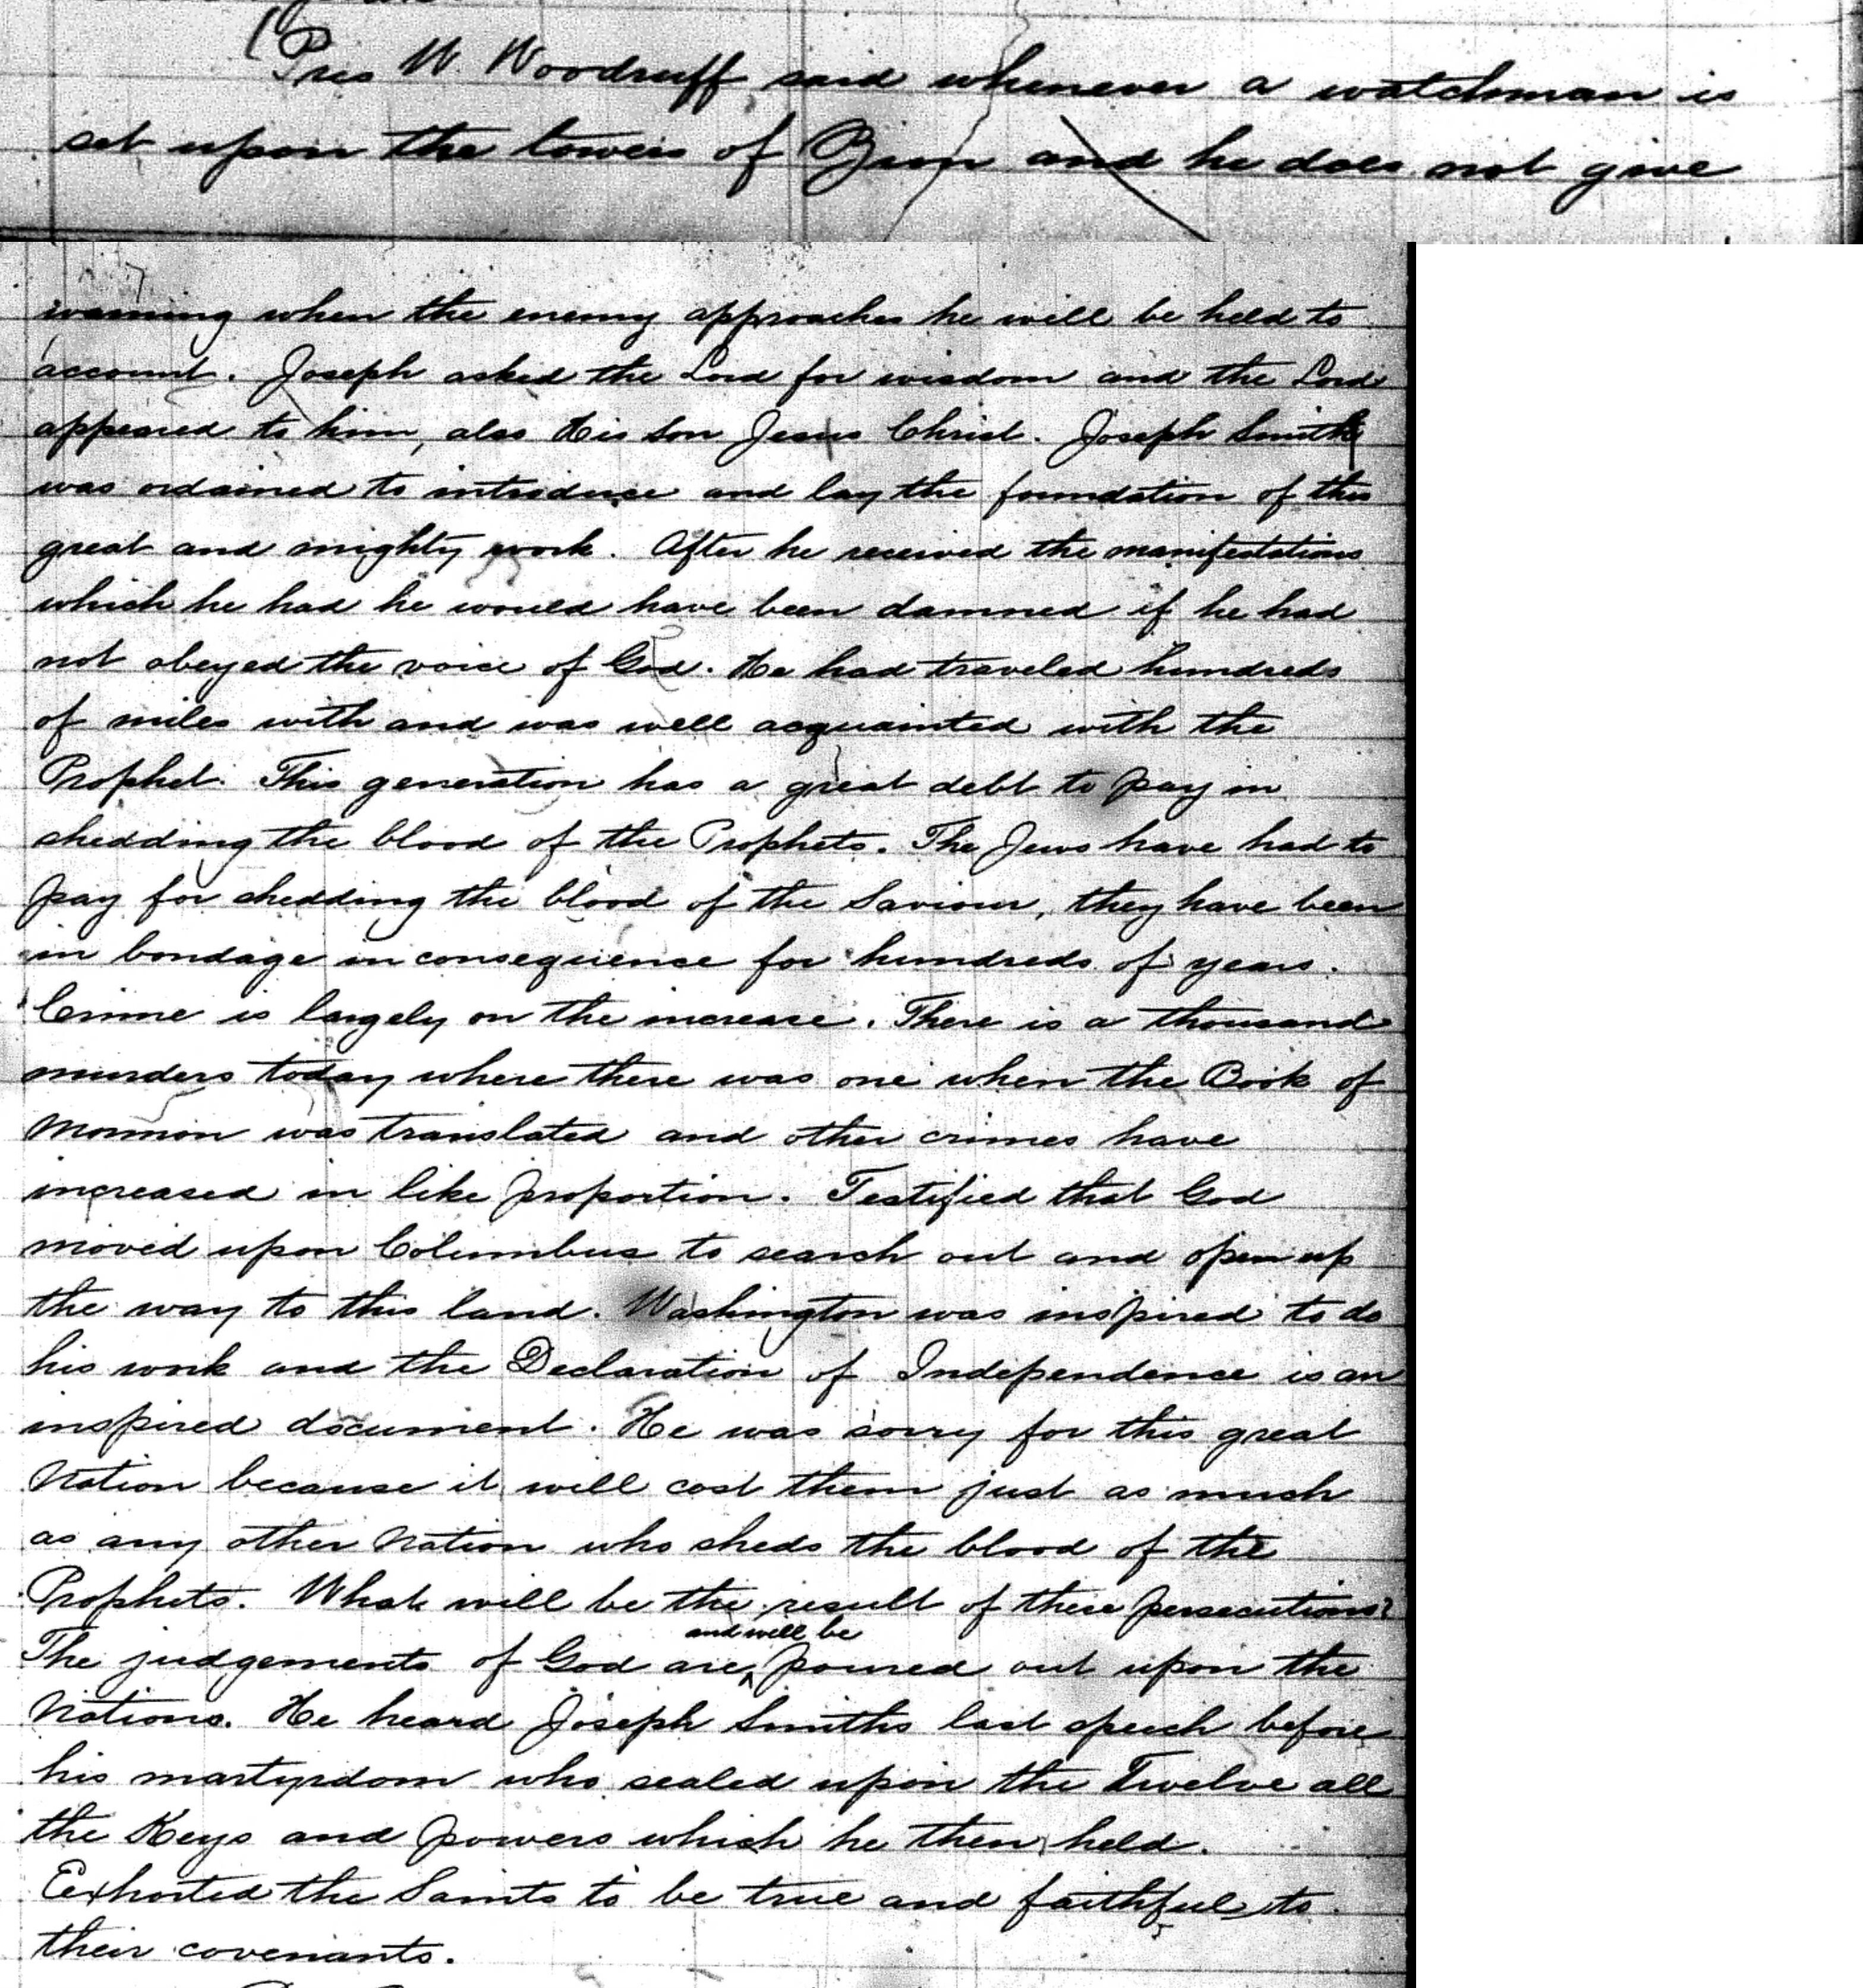 Pres W. Woodruff said whenever a watchman is
set upon the towers of Zion and he does not give
warning when the enemy approaches he will be held to
account. Joseph asked the Lord for wisdom and the Lord
appeared to him, also His son Jesus Christ. Joseph Smith
was ordained to introduce and lay the foundation of this
great and mighty work. After he received the manifestations
which he had he would have been damned if he had
not obeyed the voice of God. He had traveled hundreds
of miles with and was well acquainted with the
Prophet. This generation has a great debt to pay in
shedding the blood of the Prophets. The Jews have had to
pay for shedding the blood of the Saviour, they have been
in bondage in consequence for hundreds of years.
Crime is largely on the increase. There is a thousand
murders today where there was one when the Book of
Mormon was translated and other crimes have
increased in like proportion. Testified that God
moved upon Columbus to search out and open up
the way to this land. Washington was inspired to do
his work and the Declaration of Independence is an
inspired document. He was sorry for this great
Nation because it will cost them just as much
as any other Nation who sheds the blood of the
Prophets. What will be the result of these persecutions?
and will be
The judgements of God are ‸ poured out upon the
Nations. He heard Joseph Smiths last speech before
his martyrdom who sealed upon the Twelve all
the Keys and powers which he then held.
Exhorted the Saints to be true and faithful to
their covenants.